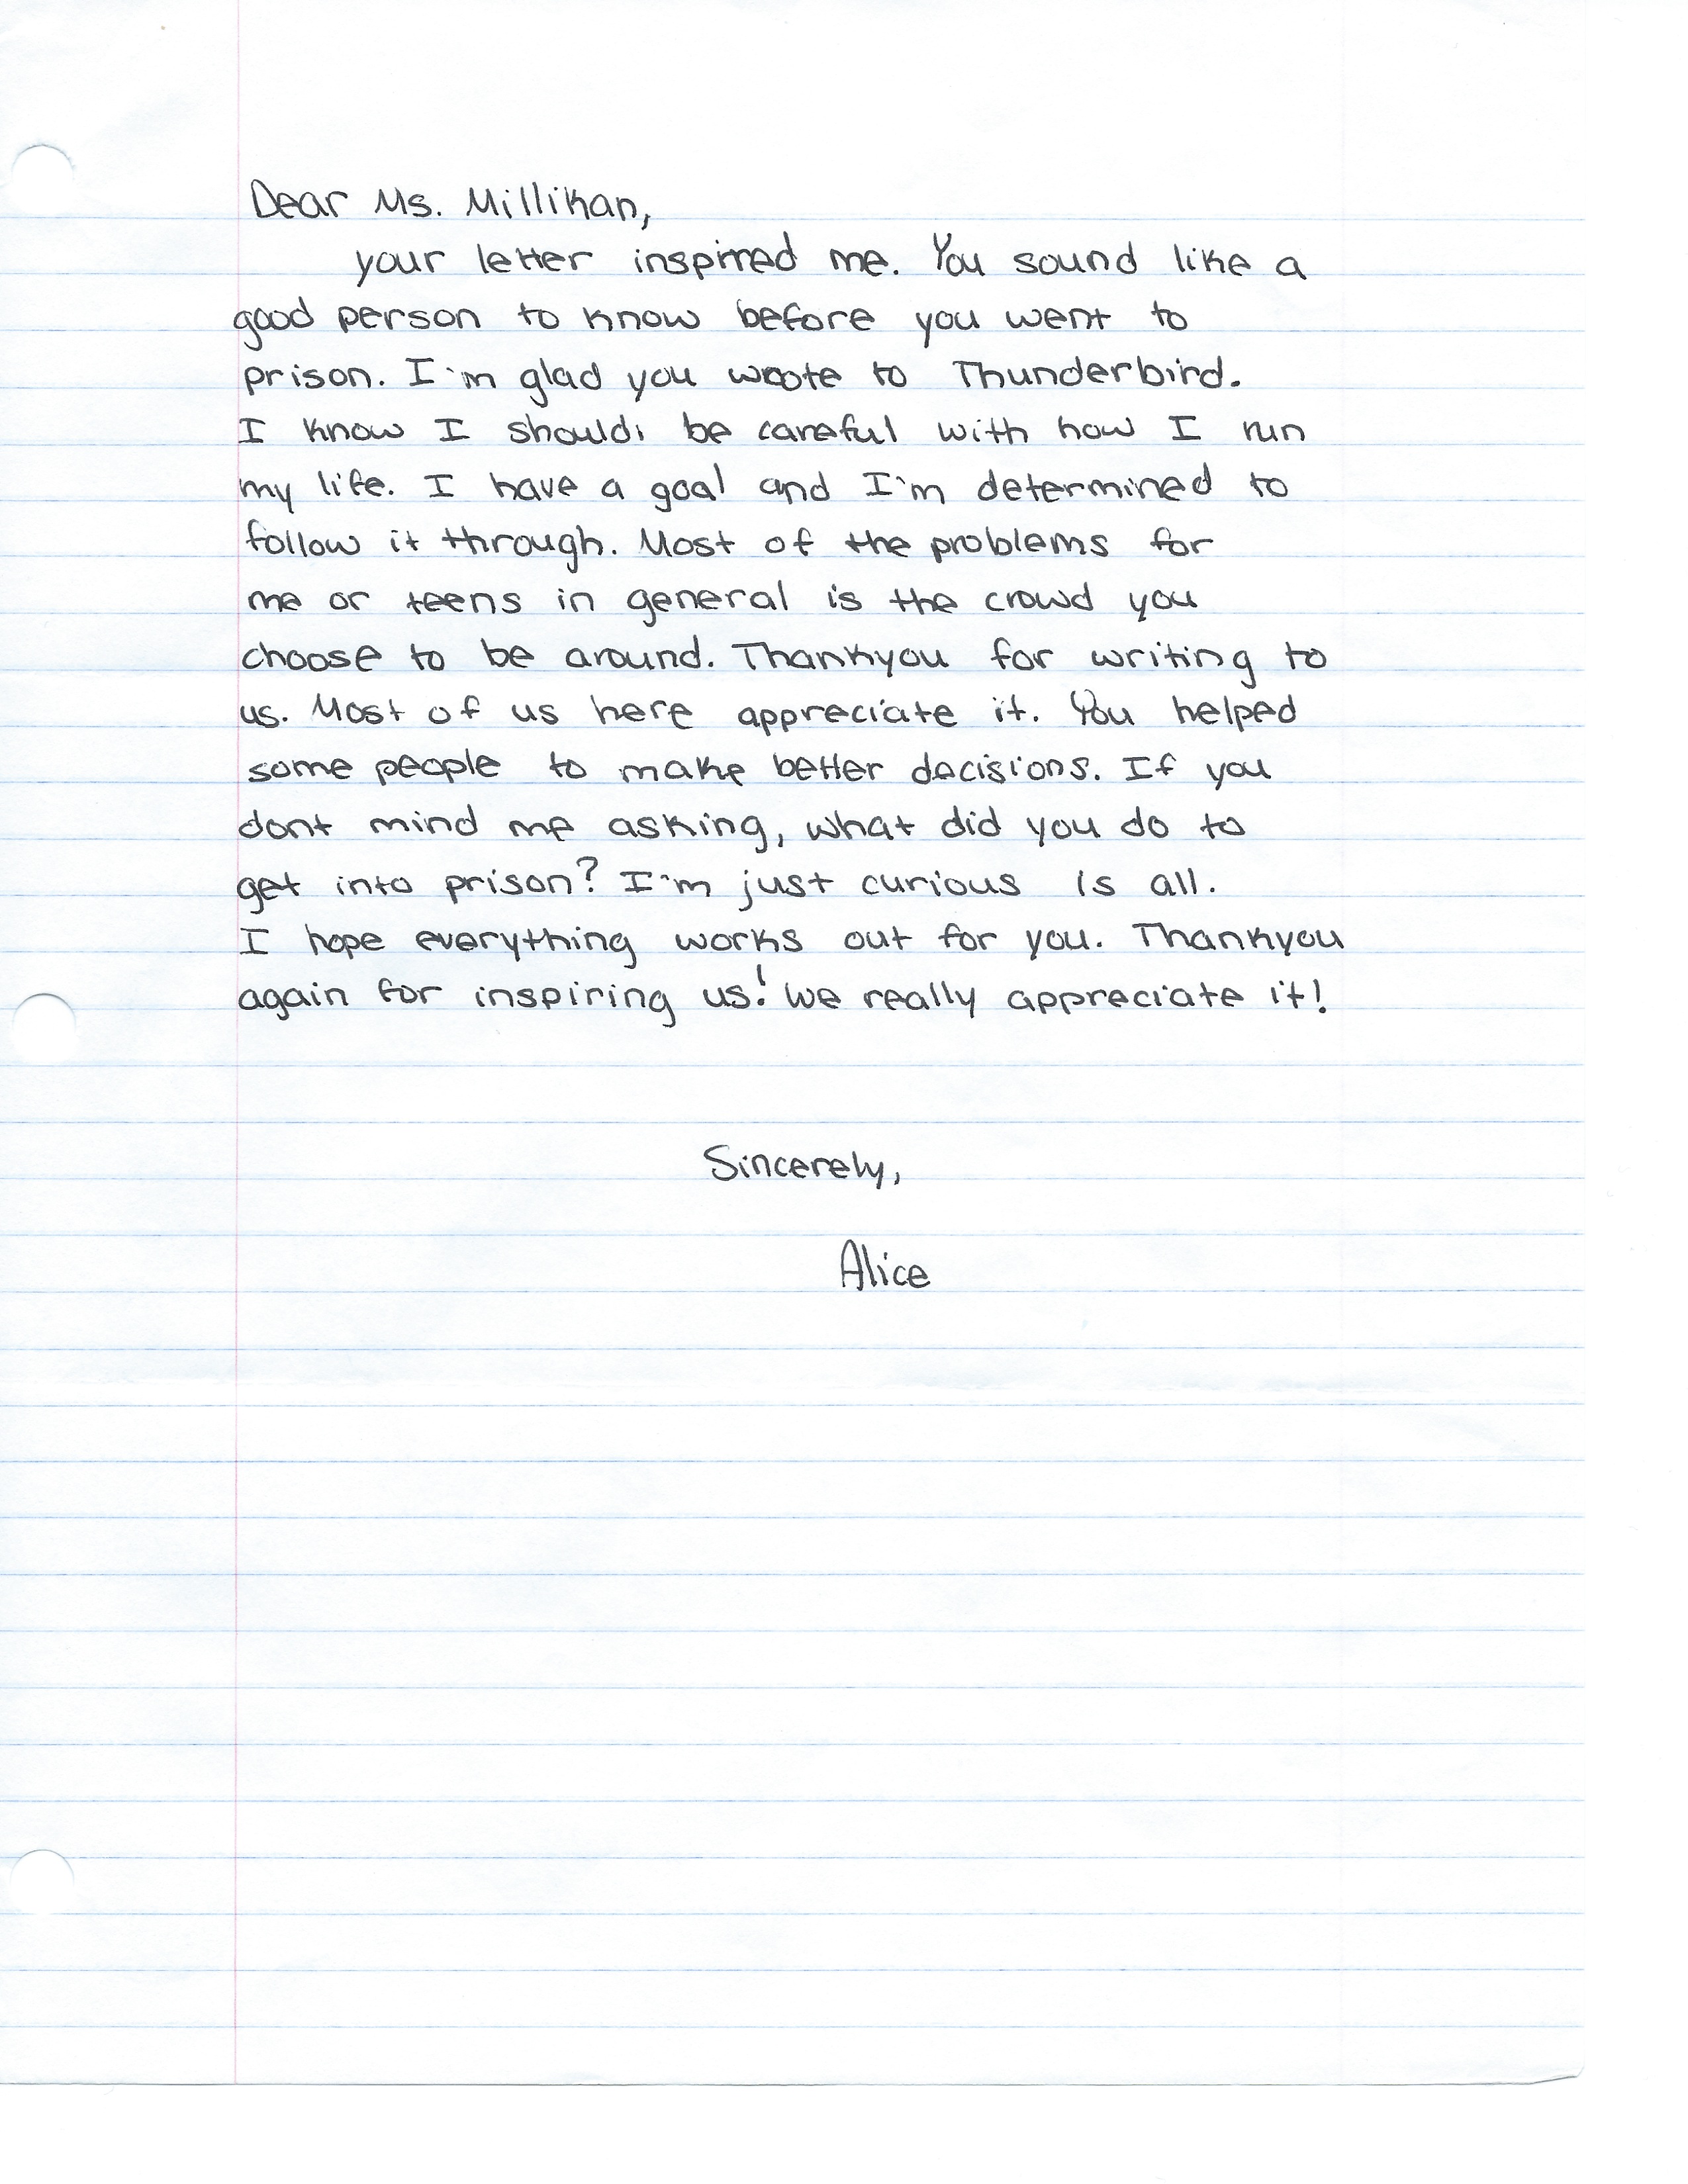 Dear Ms. Millikan,
your letter inspired me. You sound like a
good person to know before you went to
prison. I'm glad you wrote to Thunderbird.
I know I should be careful with how I run
my life. I have a goal and I'm determined to
follow it through. Most of the problems for
me or teens in general is the crowd you
choose to be around. Thankyou for writing to
us. Most of us here appreciate it. You helped
some people to make better decisions. If you
dont mind me asking, what did you do to
get into prison? I'm just curious is all.
I hope everything works out for you. Thankyou
again for inspiring us! we really appreciate it!
Sincerely,
Alice